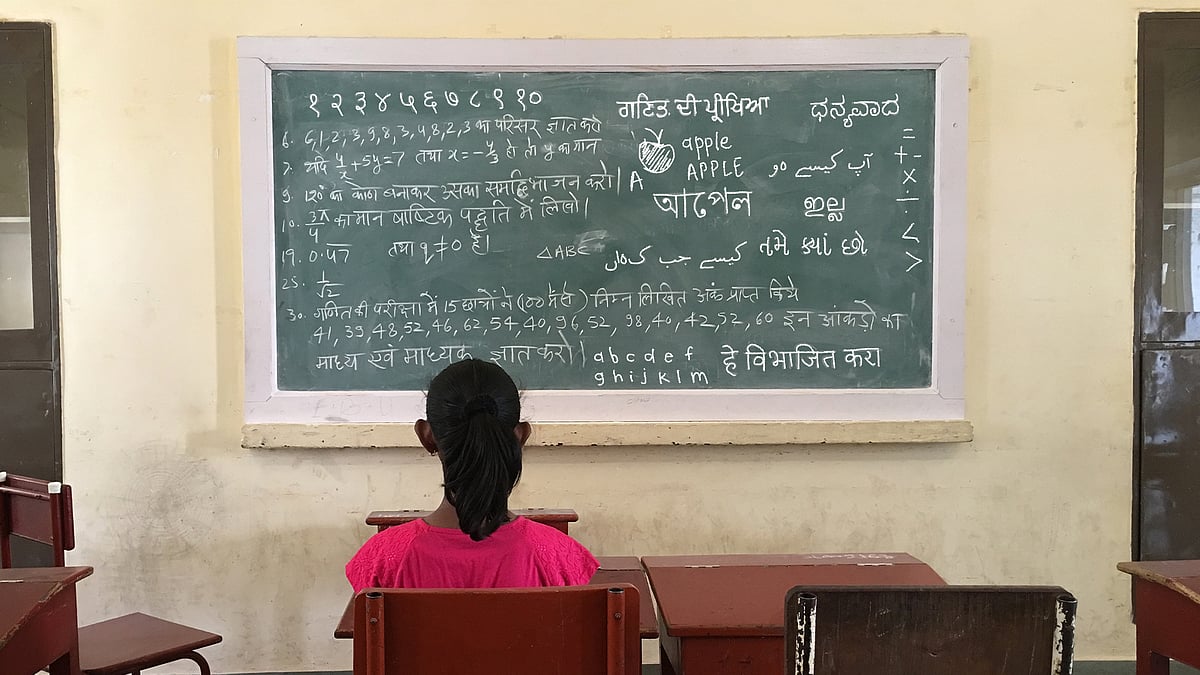 १ २ ३ ४ ५ ६ ७ ८ ९ १०
6. 6,1,2,3,9,8,3,4,8,2,3 का परिसर ज्ञात करो
7. यदि y/x + 5y = 7 तथा x = -4/3 हो तो y का मान
9. 120° का कोण बनाकर उसका समद्विभाजन करो।
10. 3π/4 का मान षाष्टिक पद्धति में लिखो।
19. 0.47 तथा q ≠ 0 है।
25. 1/√2
30. गणित की परीक्षा में 15 छात्रों ने (100 में से) निम्न लिखित अंक प्राप्त किये
41, 39, 48, 52, 46, 62, 54, 40, 96, 52, 98, 40, 42, 52, 60 इन आंकड़ो का
माध्य एवं माध्यक ज्ञात करो।
ਗਣਿਤ ਦੀ ਪ੍ਰੀਖਿਆ
ధన్యవాద
apple
A APPLE
آپ کیسے ہو
আপেল
ഇല്ല
△ABC
તમે ક્યાં છો
= + - × ÷ < >
a b c d e f
g h i j k l m
हे विभाजित करा